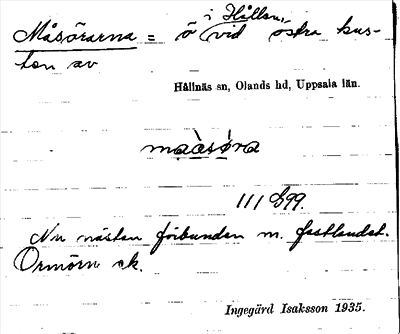 Måsörarna = ö i Hållen, vid östra kus-
ten av
Hållnäs sn, Olands hd, Uppsala län.
maàsǿra
111 899.
Nu nästan förbunden m. fastlandet.
Ormörn ek.
Ingegärd Isaksson 1935.